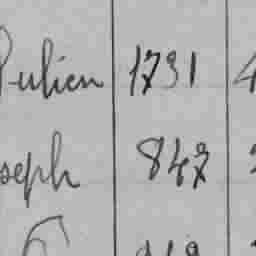 Julien 1731 4
seph 847